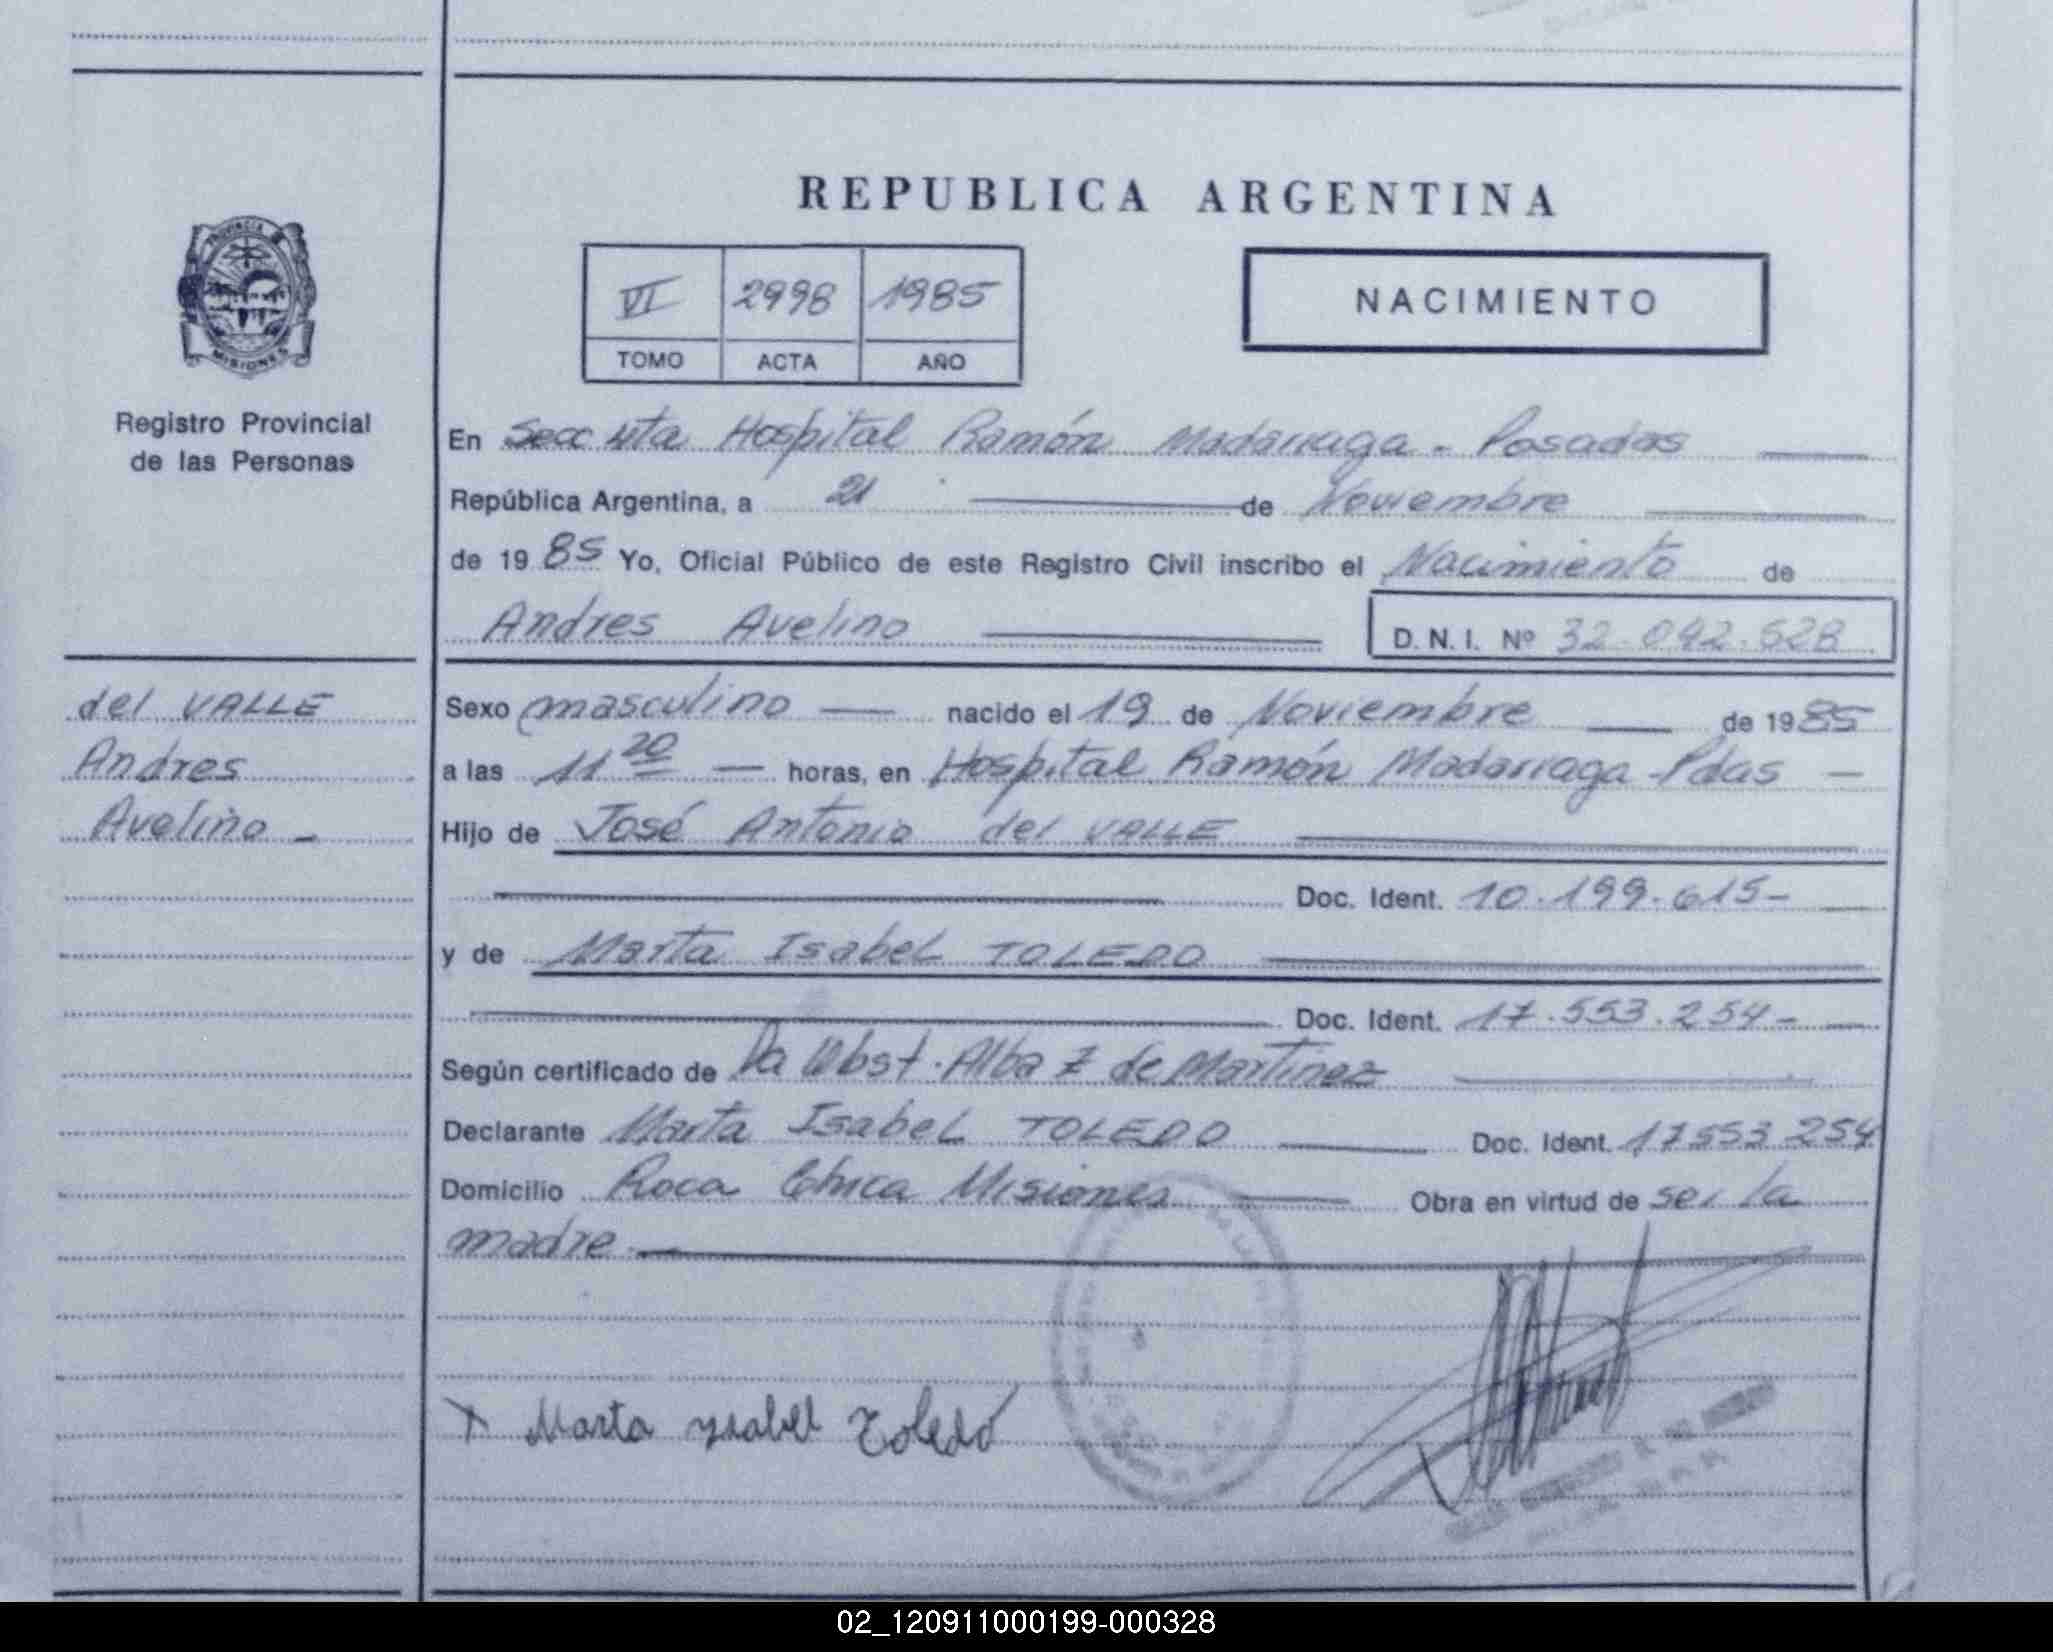 REPUBLICA ARGENTINA
PROVINCIA DE
MISIONES
Registro Provincial
de las Personas
VI 2998 1985
TOMO ACTA AÑO
NACIMIENTO
En Secc Hospital Ramón Madarriaga - Posadas
República Argentina, a 21 de Noviembre
de 1985 Yo, Oficial Público de este Registro Civil inscribo el Nacimiento de
Andres Avelino D. N. I. Nº 32.042.628
del VALLE
Andres
Avelino -
Sexo masculino nacido el 19 de Noviembre de 1985
a las 11 20 horas, en Hospital Ramón Madarriaga - Pdas -
Hijo de José Antonio del VALLE
Doc. Ident. 10.199.615-
y de Marta Isabel TOLEDO
Doc. Ident. 17.553.254-
Según certificado de Da Obst. Alba Z de Martinez
Declarante Marta Isabel TOLEDO Doc. Ident. 17553254
Domicilio Roca Chica Misiones Obra en virtud de ser la
madre.
X Marta ysabel Toledo
02_120911000199-000328